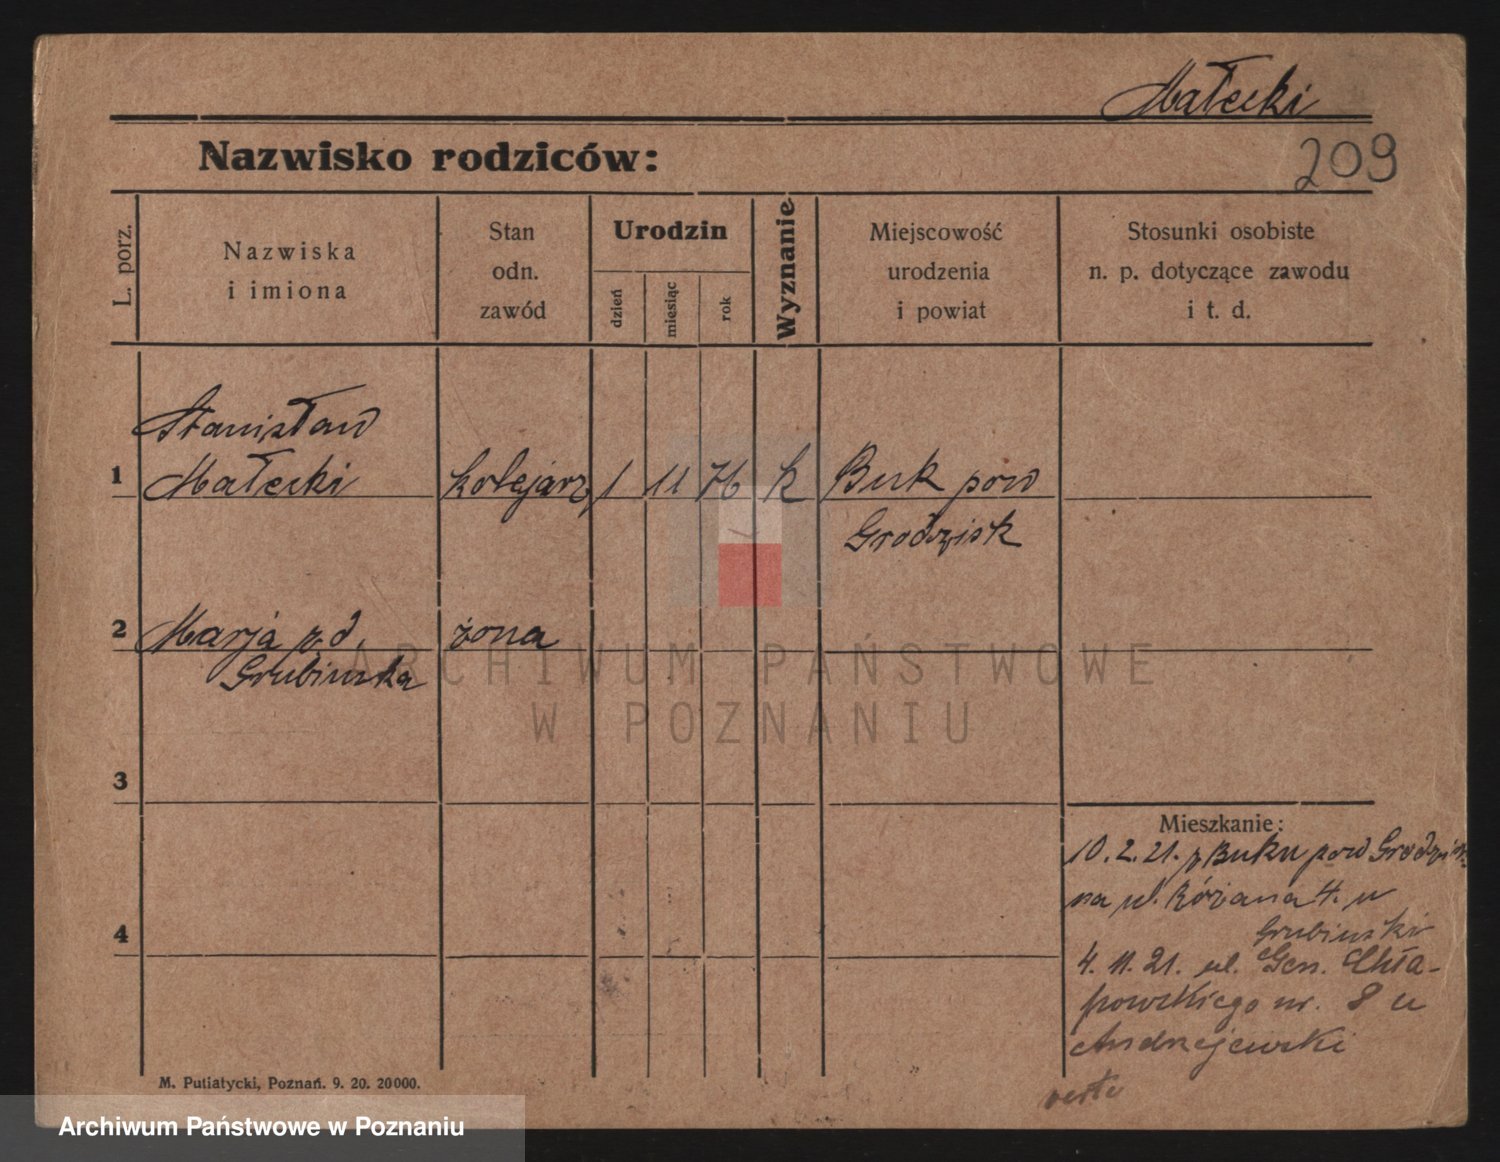 Małecki
Nazwisko rodziców:
209
L. porz.
Nazwiska
i imiona
Stan
odn.
zawód
Urodzin
dzień
miesiąc
rok
Wyznanie
Miejscowość
urodzenia
i powiat
Stosunki osobiste
n. p. dotyczące zawodu
i t. d.
Stanisław
1 Małecki kolejarz 1 11 76 k Buk pow
Grodzisk
2 Marja z d. żona
Grubinska
ARCHIWUM PAŃSTWOWE
W POZNANIU
3
Mieszkanie:
10. 2. 21. z Buku pow Grodzisk
na ul. Różana 4. u
4
Grubinski
4. 11. 21. ul. Gen. Chła-
powskiego nr. 8 u
Andrzejewski
M. Putiatycki, Poznań. 9. 20. 20000.
verte
Archiwum Państwowe w Poznaniu